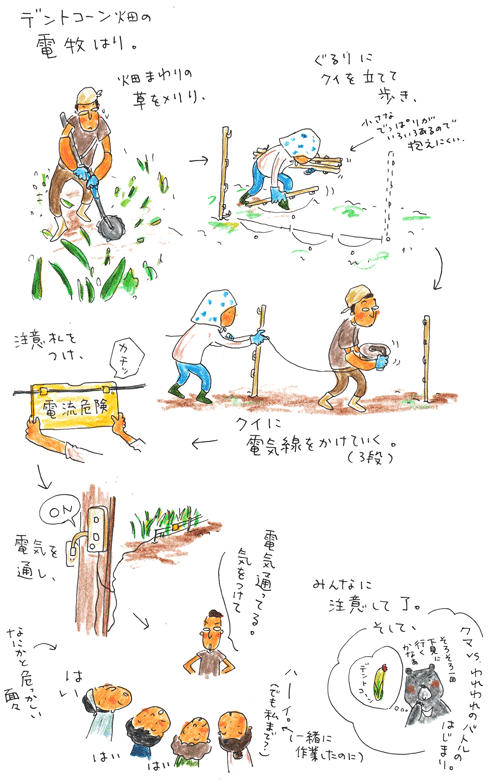 デントコーン畑の
電牧はり。
畑まわりの
草をメリリ、
ぐるりに
クイを立てて
歩き、
小さな
でっぱりが
いろいろあるので
抱えにくい。
クイに
電気線をかけていく。
(3段)
注意札を
つけ、
カチッ
電流危険
ON
電気を
通し、
電気通ってる。
気をつけて
なにかと危っかしい
面々
はい
はい
はい
ハーイ。
(でも私まで?)
(一緒に
作業したのに)
みんなに
注意して了。
そして、
クマvs.われわれのバトルの
はじまり。
そろそろ一回
下見に
行く
かなぁ
デントコーン